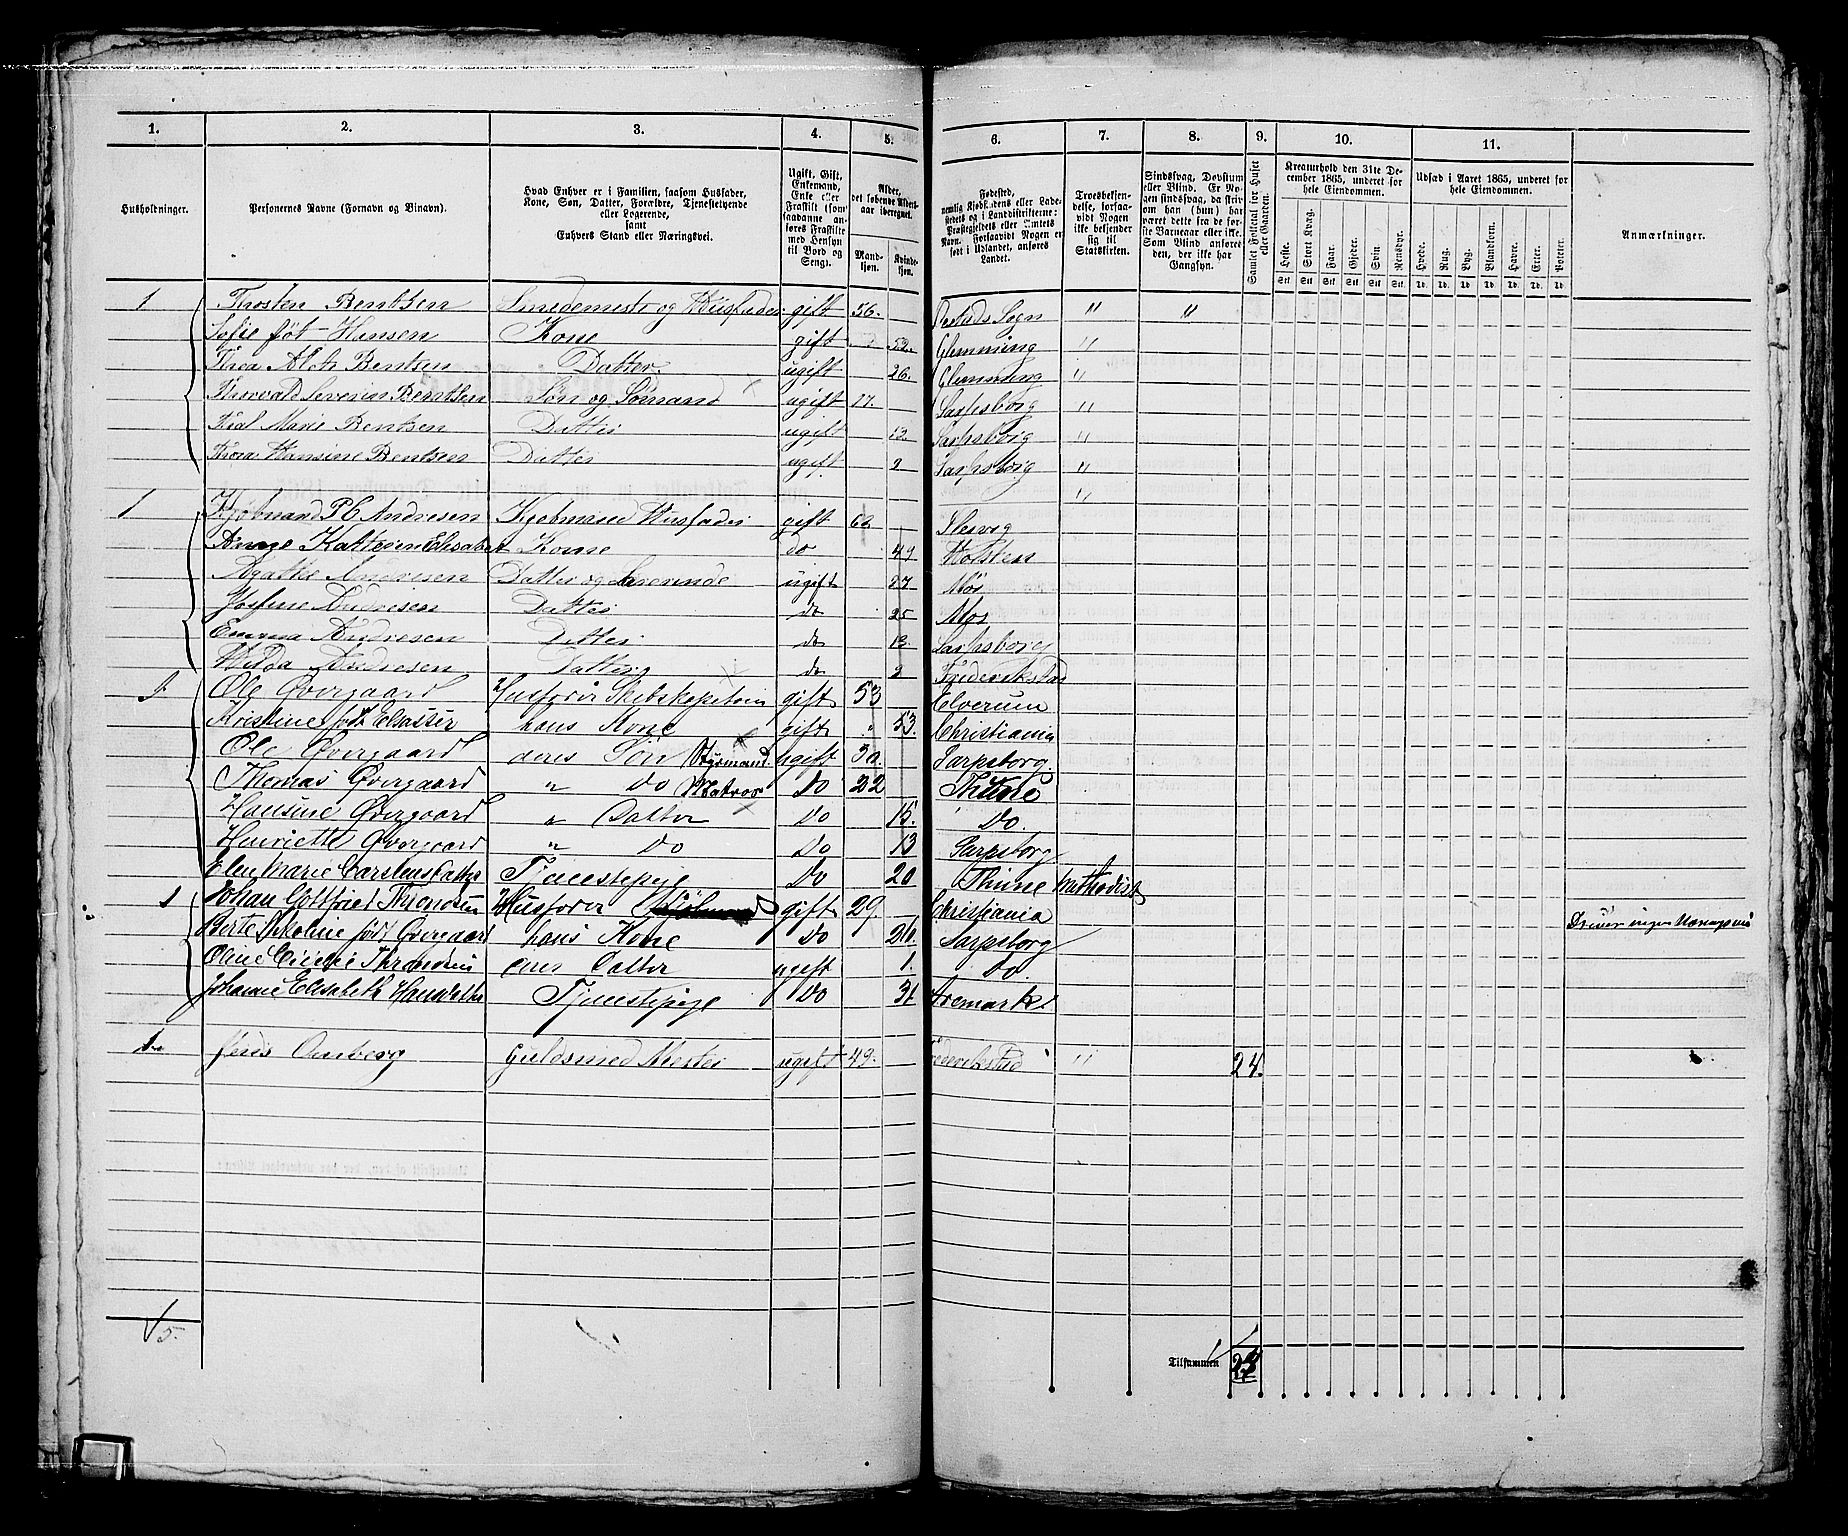 1. 2. 3. 4. 5. 6. 7. 8. 9. 10. 11.
Husholdninger.
Personernes Navne (Fornavn og Binavn).
Hvad Enhver er i Familien, saasom Husfader,
Kone, Søn, Datter, Forældre, Tjenestetyende
eller Logerende,
samt
Enhvers Stand eller Næringsvei.
Ugift, Gift,
Enkemand,
Enke eller
Fraskilt (som
saadanne an-
føres Fraskilte
med Hensyn
til Bord og
Seng).
Alder,
det løbende Alders-
aar iberegnet.
Mand-
kjøn.
Kvinde-
kjøn.
Fødested,
nemlig Kjøbstadens eller Lade-
stedets og i Landdistrikterne:
Præstegjeldets eller Amtets
Navn. Forsaavidt Nogen er
født i Udlandet, anføres
Landet.
Troesbekjen-
delse, forsaa-
vidt Nogen
ikke bekjender
sig til
Statskirken.
Sindssvag, Døvstum
eller Blind. Er No-
gen sindssvag, da skriv
om han (hun) har
været dette fra de før-
ste Barneaar eller ikke.
Som Blind anføres
den, der ikke har
Gangsyn.
Samlet Folketal for Huset
eller Gaarden.
Kreaturhold den 31te De-
cember 1865, underet for
hele Eiendommen.
Heste. Stort Kvæg. Faar. Gjeder. Svin. Rensdyr.
Stk. Stk. Stk. Stk. Stk. Stk.
Udsæd i Aaret 1865, underet for
hele Eiendommen.
Hvede. Rug. Byg. Blandkorn. Havre. Erter. Poteter.
Td. Td. Td. Td. Td. Td. Td.
Anmærkninger.
1 Thosten Bentsen Smedemester og Husfader gift 56. Sogn " "
Sofie föt Hansen Kone gift 52. Glemming "
Thea Bentsen Datter. ugift 26. Glemming "
Thorvald Severin Bentsen Søn og Sömand ugift 17. Sarpsborg "
Marie Bentsen Datter ugift 13. Sarpsborg "
Thora Hansine Bentsen Datter ugift 2 Sarpsborg "
"
1 Kjøbmand P C Andresen Kjøbmand Husfader gift 60 Slesvig
Anne Kattrine Elisabet Kone do 49 Holsten
Agathe Andresen Datter og ugift 27 Mos
Josfine Andresen Datter do 25 Mos
Emma Andresen Datter do 13. Sarpsborg
Hilda Andresen Datter do 2 Frederikstad
1 Ole Øvergaard Husfader Skibskaptein gift 53 Elverum
Kristine født Elsasser hans Kone gift " 53. Christiania
Ole Øvergaard deres Søn Styrmand ugift 30 Sarpsborg.
Thomas Øvergaard " Do Matros Do 22 Thune
Hansine Øvergaard " Datter Do 15. Do.
Henriette Øvergaard " Do Do 13 Sarpsborg
Elen Marie Carstensdatter Tjenestepige Do 20 Thune Methodist
1 Johan Gottfried Throndsen Husfader gift 29 Christiania Driver ingen Næringsvei
Berte Nikoline født Øvergaard hans Kone Do 26. Sarpsborg
Oline Throndsen Datter ugift 1. Do.
Johanne Elisabeth Hansdatter Tjenestepige Do 31 Aremark
1 Jens Amberg Guldsmed Mester ugift 49. Frederikstad " 24.
5.
Tilsammen 24